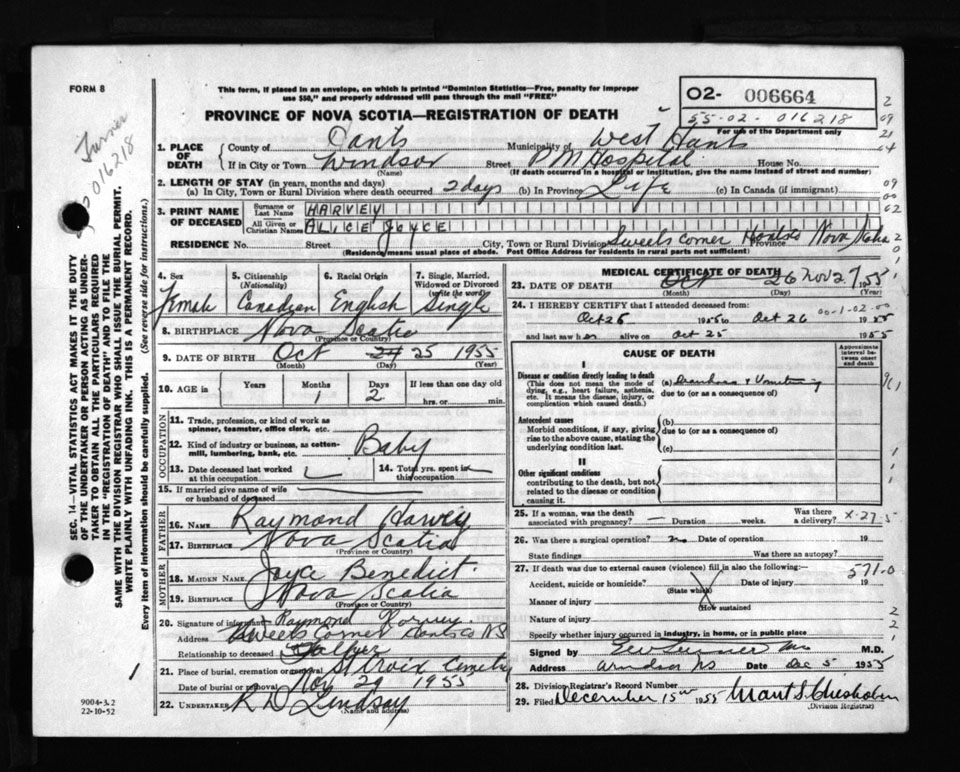 FORM 8
This form, if placed in an envelope, on which is printed "Dominion Statistics—Free, penalty for improper
use $50," and properly addressed will pass through the mail "FREE"
O2- 006664
55-02-016218
For use of the Department only
PROVINCE OF NOVA SCOTIA—REGISTRATION OF DEATH
Turner
016218
1. PLACE OF DEATH
County of Hants Municipality of West Hants
If in City or Town Windsor Street P M Hospital House No.
(Name) (If death occurred in a hospital or institution, give the name instead of street and number)
2. LENGTH OF STAY (in years, months and days)
(a) In City, Town or Rural Division where death occurred 2 days (b) In Province Life (c) In Canada (if immigrant)
3. PRINT NAME OF DECEASED
Surname or Last Name HARVEY
All Given or Christian Names ALICE JOYCE
RESIDENCE No. Street City, Town or Rural Division Sweets Corner Hants Co Province Nova Scotia
(Residence means usual place of abode. Post Office Address for Residents in rural parts not sufficient)
4. Sex Female
5. Citizenship (Nationality) Canadian
6. Racial Origin English
7. Single, Married, Widowed or Divorced (write the word) Single
8. BIRTHPLACE Nova Scotia
(Province or Country)
9. DATE OF BIRTH Oct 25 1955
(Month) (Day) (Year)
10. AGE in Years Months 1 Days 2 If less than one day old
hrs. or min.
OCCUPATION
11. Trade, profession, or kind of work as spinner, teamster, office clerk, etc.
12. Kind of industry or business, as cotton-mill, lumbering, bank, etc. Baby
13. Date deceased last worked at this occupation
14. Total yrs. spent in this occupation
15. If married give name of wife or husband of deceased
FATHER
16. NAME Raymond Harvey
17. BIRTHPLACE Nova Scotia
(Province or Country)
MOTHER
18. MAIDEN NAME Joyce Benedict
19. BIRTHPLACE Nova Scotia
(Province or Country)
20. Signature of informant Raymond Harvey
Address Sweets Corner Hants Co NS
Relationship to deceased Father
21. Place of burial, cremation or removal St Croix Cemetry
Date of burial or removal Nov 29 1955
22. UNDERTAKER R D Lindsay
(Name and address)
MEDICAL CERTIFICATE OF DEATH
23. DATE OF DEATH Oct 26 Nov 27 1955
(Month) (Day) (Year)
24. I HEREBY CERTIFY that I attended deceased from:
Oct 25 1955 to Oct 26 1955
and last saw her alive on Oct 25 1955
CAUSE OF DEATH
Approximate interval between onset and death
I
Disease or condition directly leading to death
(This does not mean the mode of dying, e.g., heart failure, asthenia, etc. It means the disease, injury, or complication which caused death.)
(a) Diarrhoea & Vomiting
due to (or as a consequence of)
Antecedent causes
Morbid conditions, if any, giving rise to the above cause, stating the underlying condition last.
(b)
due to (or as a consequence of)
(c)
II
Other significant conditions
contributing to the death, but not related to the disease or condition causing it.
25. If a woman, was the death associated with pregnancy? Duration weeks. Was there a delivery? X-27 5
26. Was there a surgical operation? no Date of operation 19
State findings Was there an autopsy?
27. If death was due to external causes (violence) fill in also the following:— 571.0
Accident, suicide or homicide? Date of injury 19
(State which)
Manner of injury
(How sustained
Nature of injury
Specify whether injury occurred in industry, in home, or in public place
Signed by M.D.
Address Windsor NS Date Dec 5 1955
28. Division Registrar's Record Number
29. Filed December 15th 1955 Chisholm
(Division Registrar)
SEC. 14—VITAL STATISTICS ACT MAKES IT THE DUTY
OF THE UNDERTAKER OR PERSON ACTING AS UNDER-
TAKER TO OBTAIN ALL THE PARTICULARS REQUIRED
IN THE "REGISTRATION OF DEATH" AND TO FILE THE
SAME WITH THE DIVISION REGISTRAR WHO SHALL ISSUE THE BURIAL PERMIT.
WRITE PLAINLY WITH UNFADING INK. THIS IS A PERMANENT RECORD.
Every item of information should be carefully supplied. (See reverse side for instructions.)
9004-3.2
22-10-52